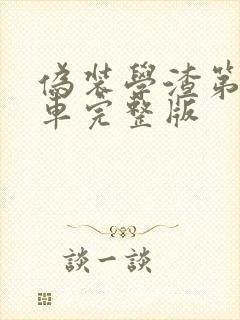 偽裝學渣第
車完整版
談一談